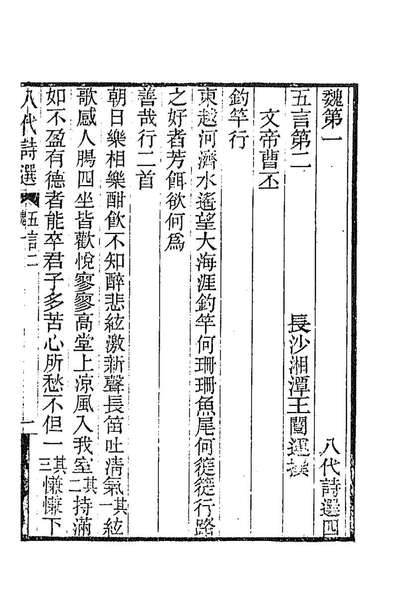 魏第一 八代詩選四
五言第二 長沙湘潭王闓運撰
文帝曹丕
釣竿行
東越河濟水遙望大海涯釣竿何珊珊魚尾何簁簁行路
之好者芳餌欲何爲
善哉行二首
朝日樂相樂酣飲不知醉悲絃激新聲長笛吐淸氣其一絃
歌感人腸四坐皆歡悅寥寥高堂上涼風入我室其二持滿
如不盈有德者能卒君子多苦心所愁不但一其三慊慊下
八代詩選 五言二 一